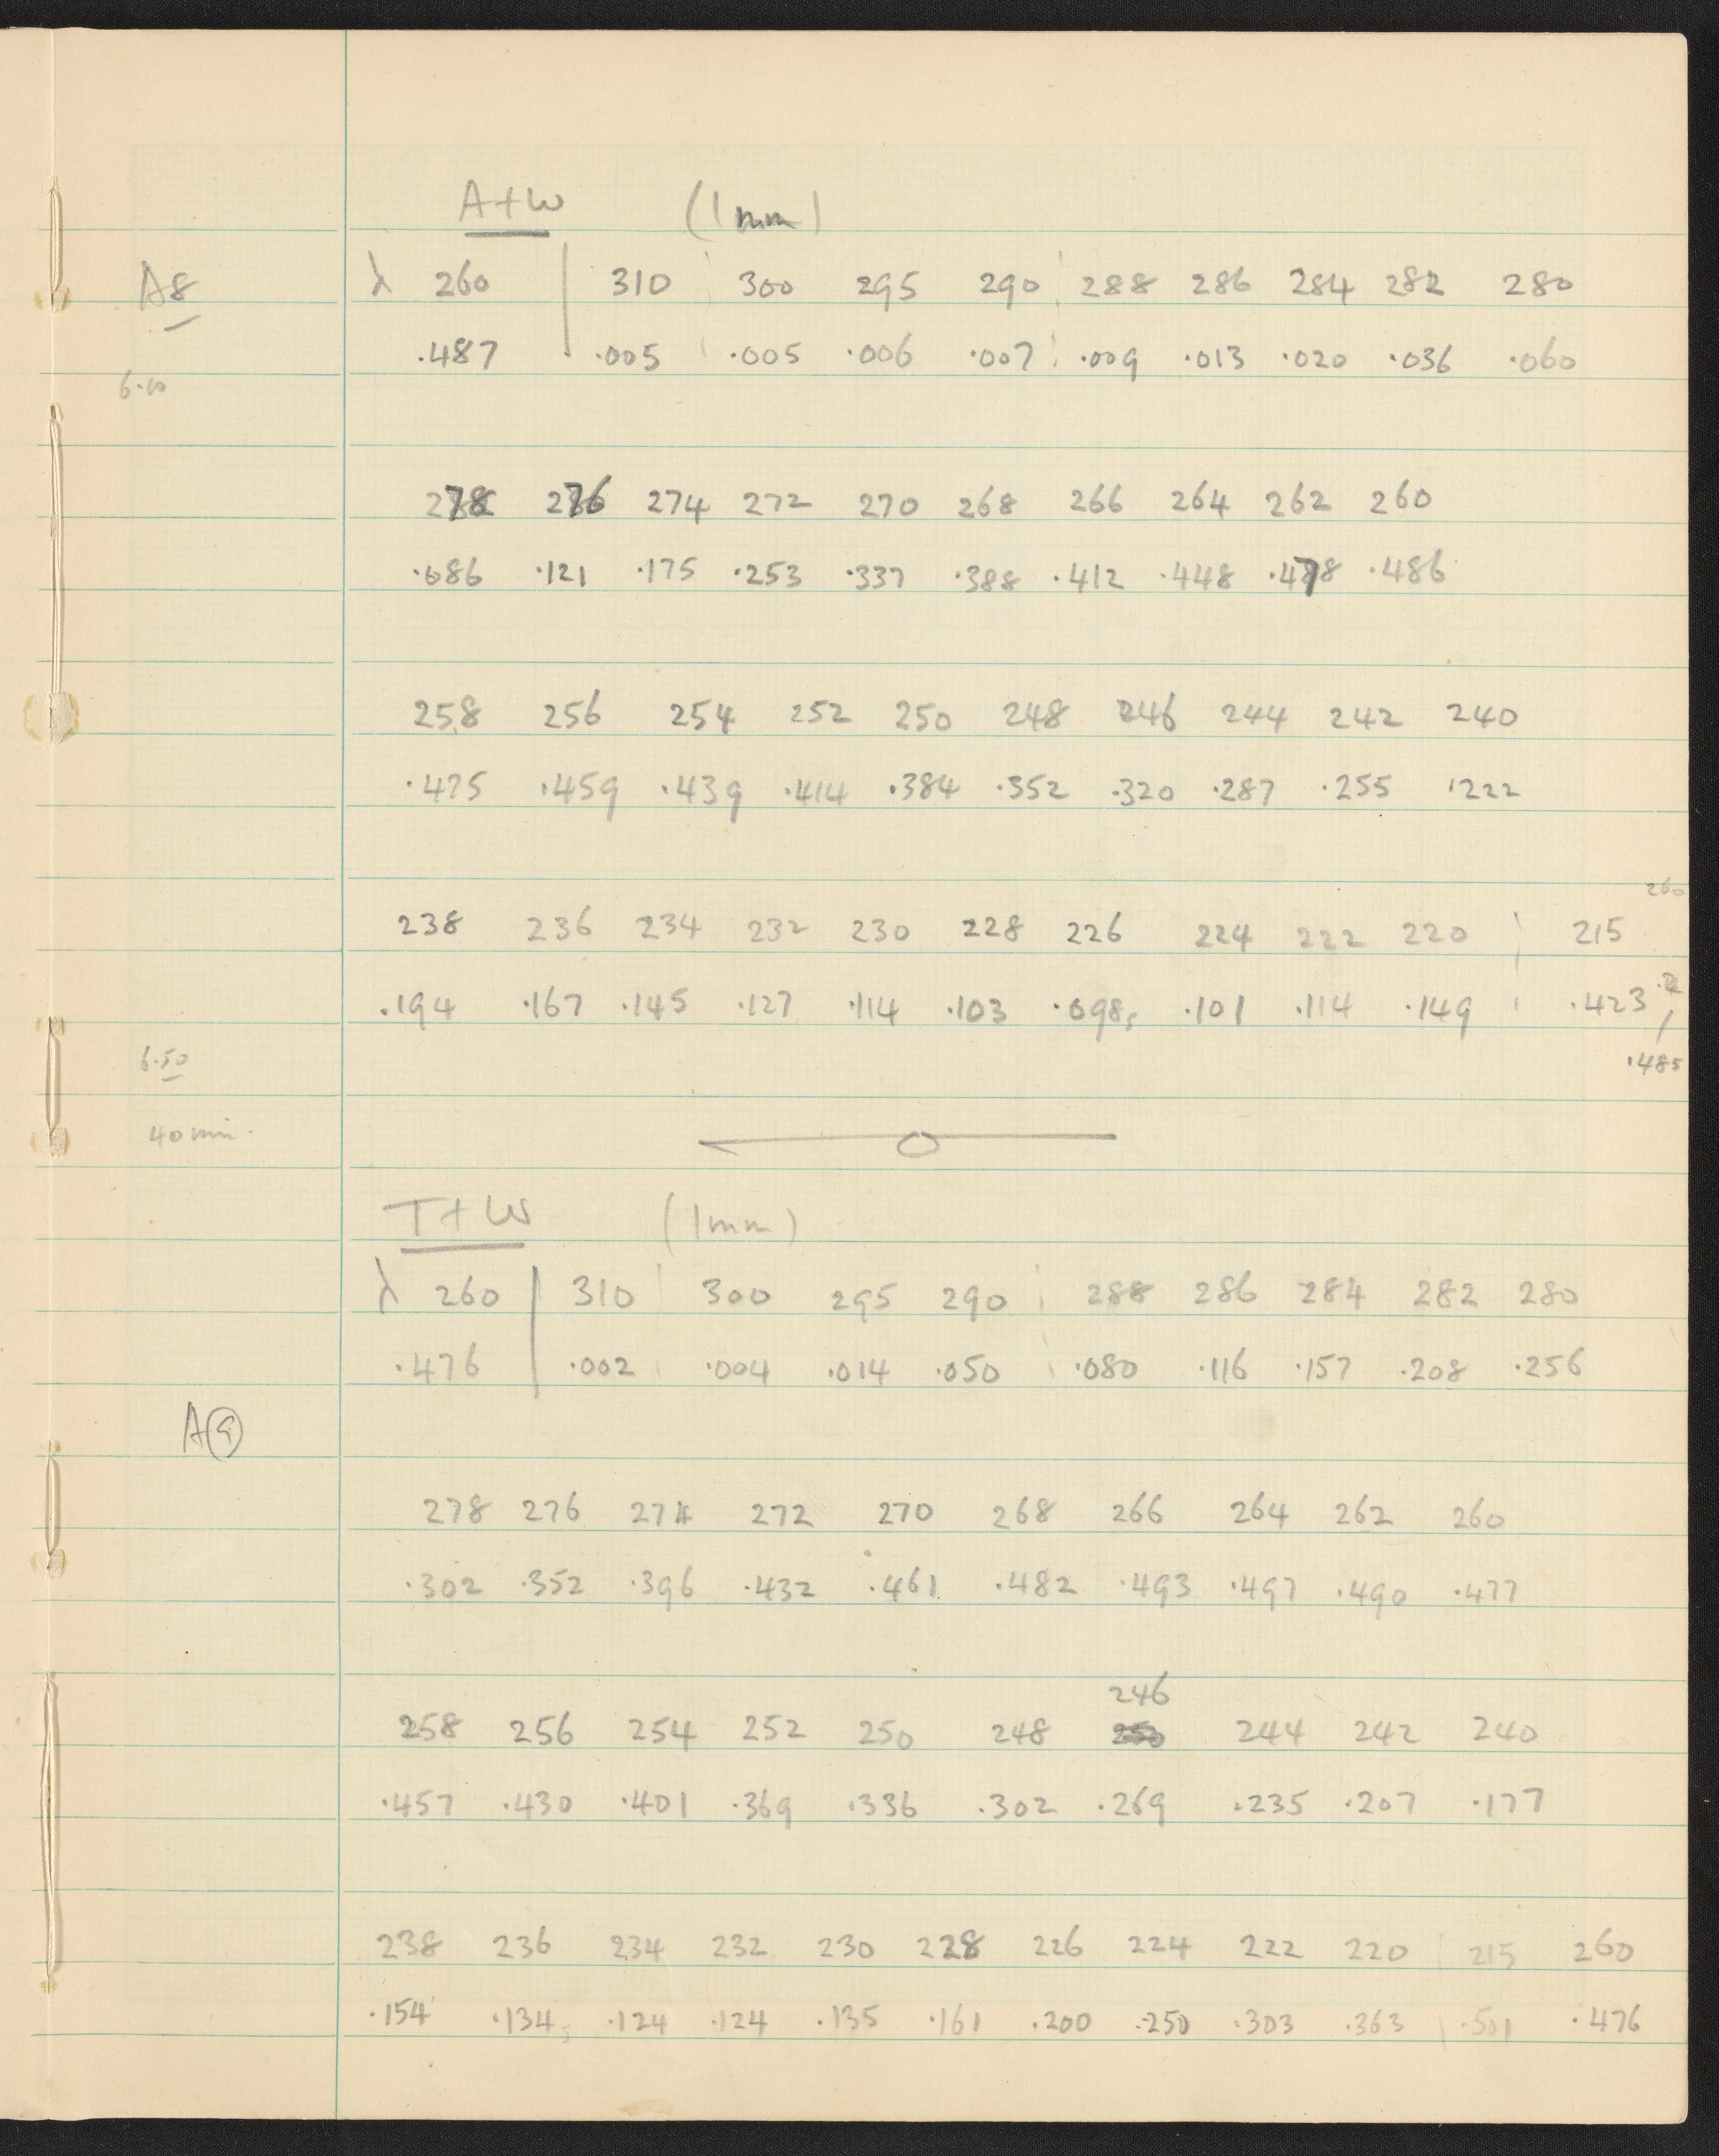 A+W (1mm)
A8 λ 260 310 300 295 290 288 286 284 282 280
.487 .005 .005 .006 .007 .009 .013 .020 .036 .060
6.10
278 276 274 272 270 268 266 264 262 260
.086 .121 .175 .253 .337 .388 .412 .448 .478 .486
258 256 254 252 250 248 246 244 242 240
.475 .459 .439 .414 .384 .352 .320 .287 .255 .222
260
238 236 234 232 230 228 226 224 222 220 215
.194 .167 .145 .127 .114 .103 .098₅ .101 .114 .149 .423
6.50 .485
40 min.
T+W (1mm)
λ 260 310 300 295 290 288 286 284 282 280
.476 .002 .004 .014 .050 .080 .116 .157 .208 .256
A9
278 276 274 272 270 268 266 264 262 260
.302 .352 .396 .432 .461 .482 .493 .497 .490 .477
246
258 256 254 252 250 248 250 244 242 240
.457 .430 .401 .369 .336 .302 .269 .235 .207 .177
238 236 234 232 230 228 226 224 222 220 215 260
.154 .134₅ .124 .124 .135 .161 .200 .250 .303 .363 .501 .476